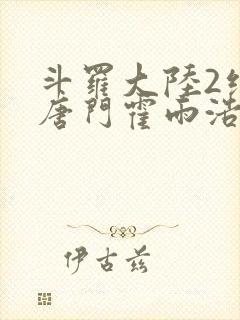 斗羅大陸2
唐門霍雨浩
伊古兹